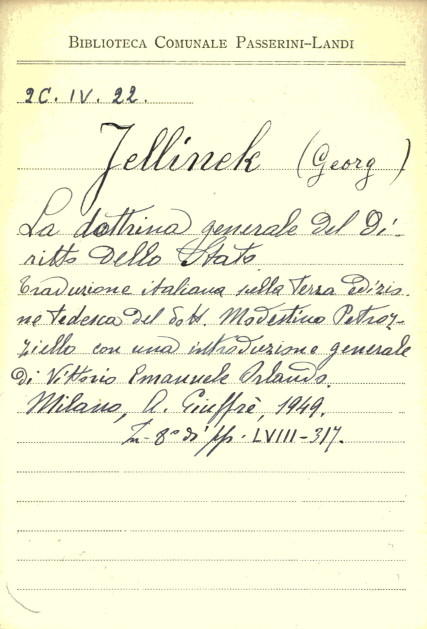 BIBLIOTECA COMUNALE PASSERINI-LANDI
2C. IV. 22.
Jellinek (Georg)
La dottrina generale del Di-
ritto dello Stato
Traduzione italiana sulla terza edizio-
ne tedesca del dott. Modestino Petroz-
ziello con una introduzione generale
di Vittorio Emanuele Orlando.
Milano, A. Giuffrè, 1949.
In-8° di pp. LVIII-317.